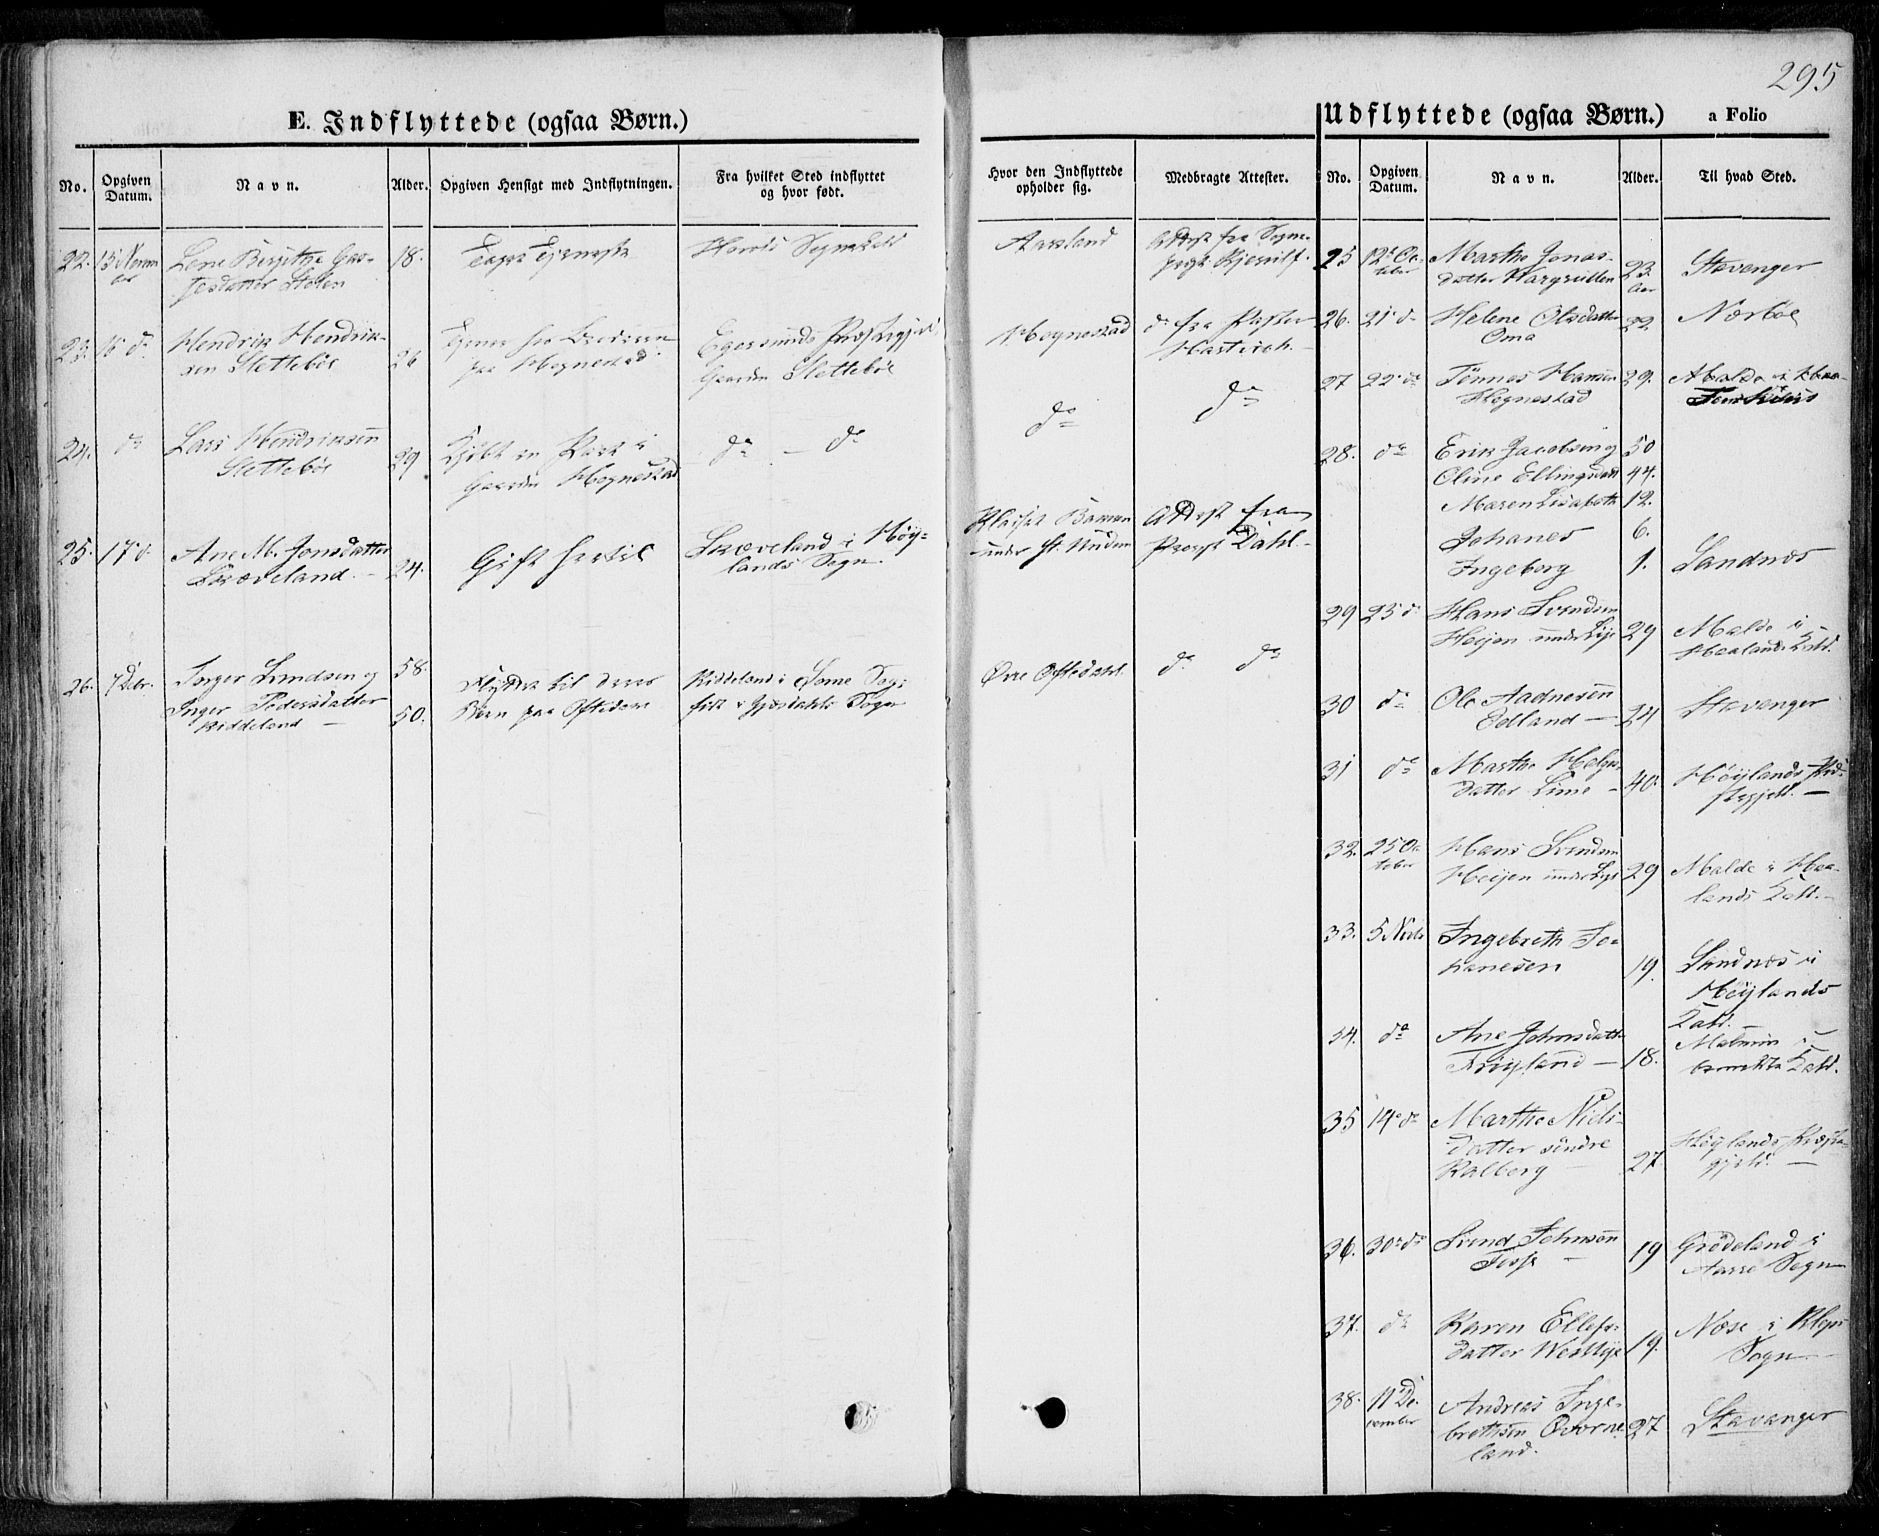 295
E. Indflyttede (ogsaa Børn.)
No.
Opgiven Datum.
Navn.
Alder.
Opgiven Hensigt med Indflytningen.
Fra hvilket Sted indflyttet og hvor født.
Hvor den Indflyttede opholder sig.
Medbragte Attester.
22. 13 Novem
ber
Lene Birgithe
datter
18.
Tager Tjeneste
Aarsland
Attest fra Sogne-
23. 15 do
Hendrik Hendrik-
sen Slettebøe
26
Tjener hos
paa Hognestad
Egersunds Præstegjeld
Gaarden Slettebøe
Hognestad
do fra Pastor
24. do
Lars Hendriksen
Slettebøe
29
Kjøbt en Part i
Gaarden Hognestad
do - do
do
do
25. 17 do
Ane M. Jonsdatter
Skæveland. -
24.
Gift hertil
Skæveland i Høy-
lands Sogn.
under
Attest fra
Provst Dahl.
26. 7 Debr.
Svendsen og
Inger Pedersdatter
Riddeland -
58.
50.
Flyttet til deres
Børn paa Oftedal
Riddeland i Sogn
Sogn
Øvre Oftedahl.
do do
Udflyttede (ogsaa Børn.)
a Folio
No.
Opgiven Datum.
Navn.
Alder.
Til hvad Sted.
25 12 Oc-
tober
Marthe Jonas-
datter
23
Aar
Stavanger
26. 21 do
Helene Olsdatter
Oma
22.
Nærbøe
27 22 do
Tønnes Hansen
Hognestad
29.
Malde i Haa-
28. do
Erik Jacobsen og 50
Oline Ellingsdatt 44.
Maren Lisabeth 12.
Johanes 6.
Ingeborg 1.
Sandnæs
29 25 do
Hans Svendsen
Heijen under Lye
29
Malde i
Haalands
30 do
Ole Aadnesen
Edland -
24
Stavanger
31 do
Marthe Helges-
datter Lime -
40.
Høylands Præ-
stegjeld. -
32. 25 Oc
tober
Hans Svendsen
Heijen under Lye
29
Malde i Haa-
lands
33. 5 Novbr
Ingebreth Jo-
hanesen
19.
Sandnæs i
Høylands
34. do
Ane Johnsdatter
Frøyland -
18.
i
35 14 do
Marthe Niels-
datter søndre
Kalberg -
27
Høylands Præste-
gjeld. -
36. 30 do
Svend Johnson
Fosse -
19
Grødeland i
Sogn
37. do
Karen Ellefs-
datter Westlye
19.
Næse i Klep
Sogn -
38. 11 De-
cember
Andreas Inge-
brethsen Qværne-
land.
27
Stavanger